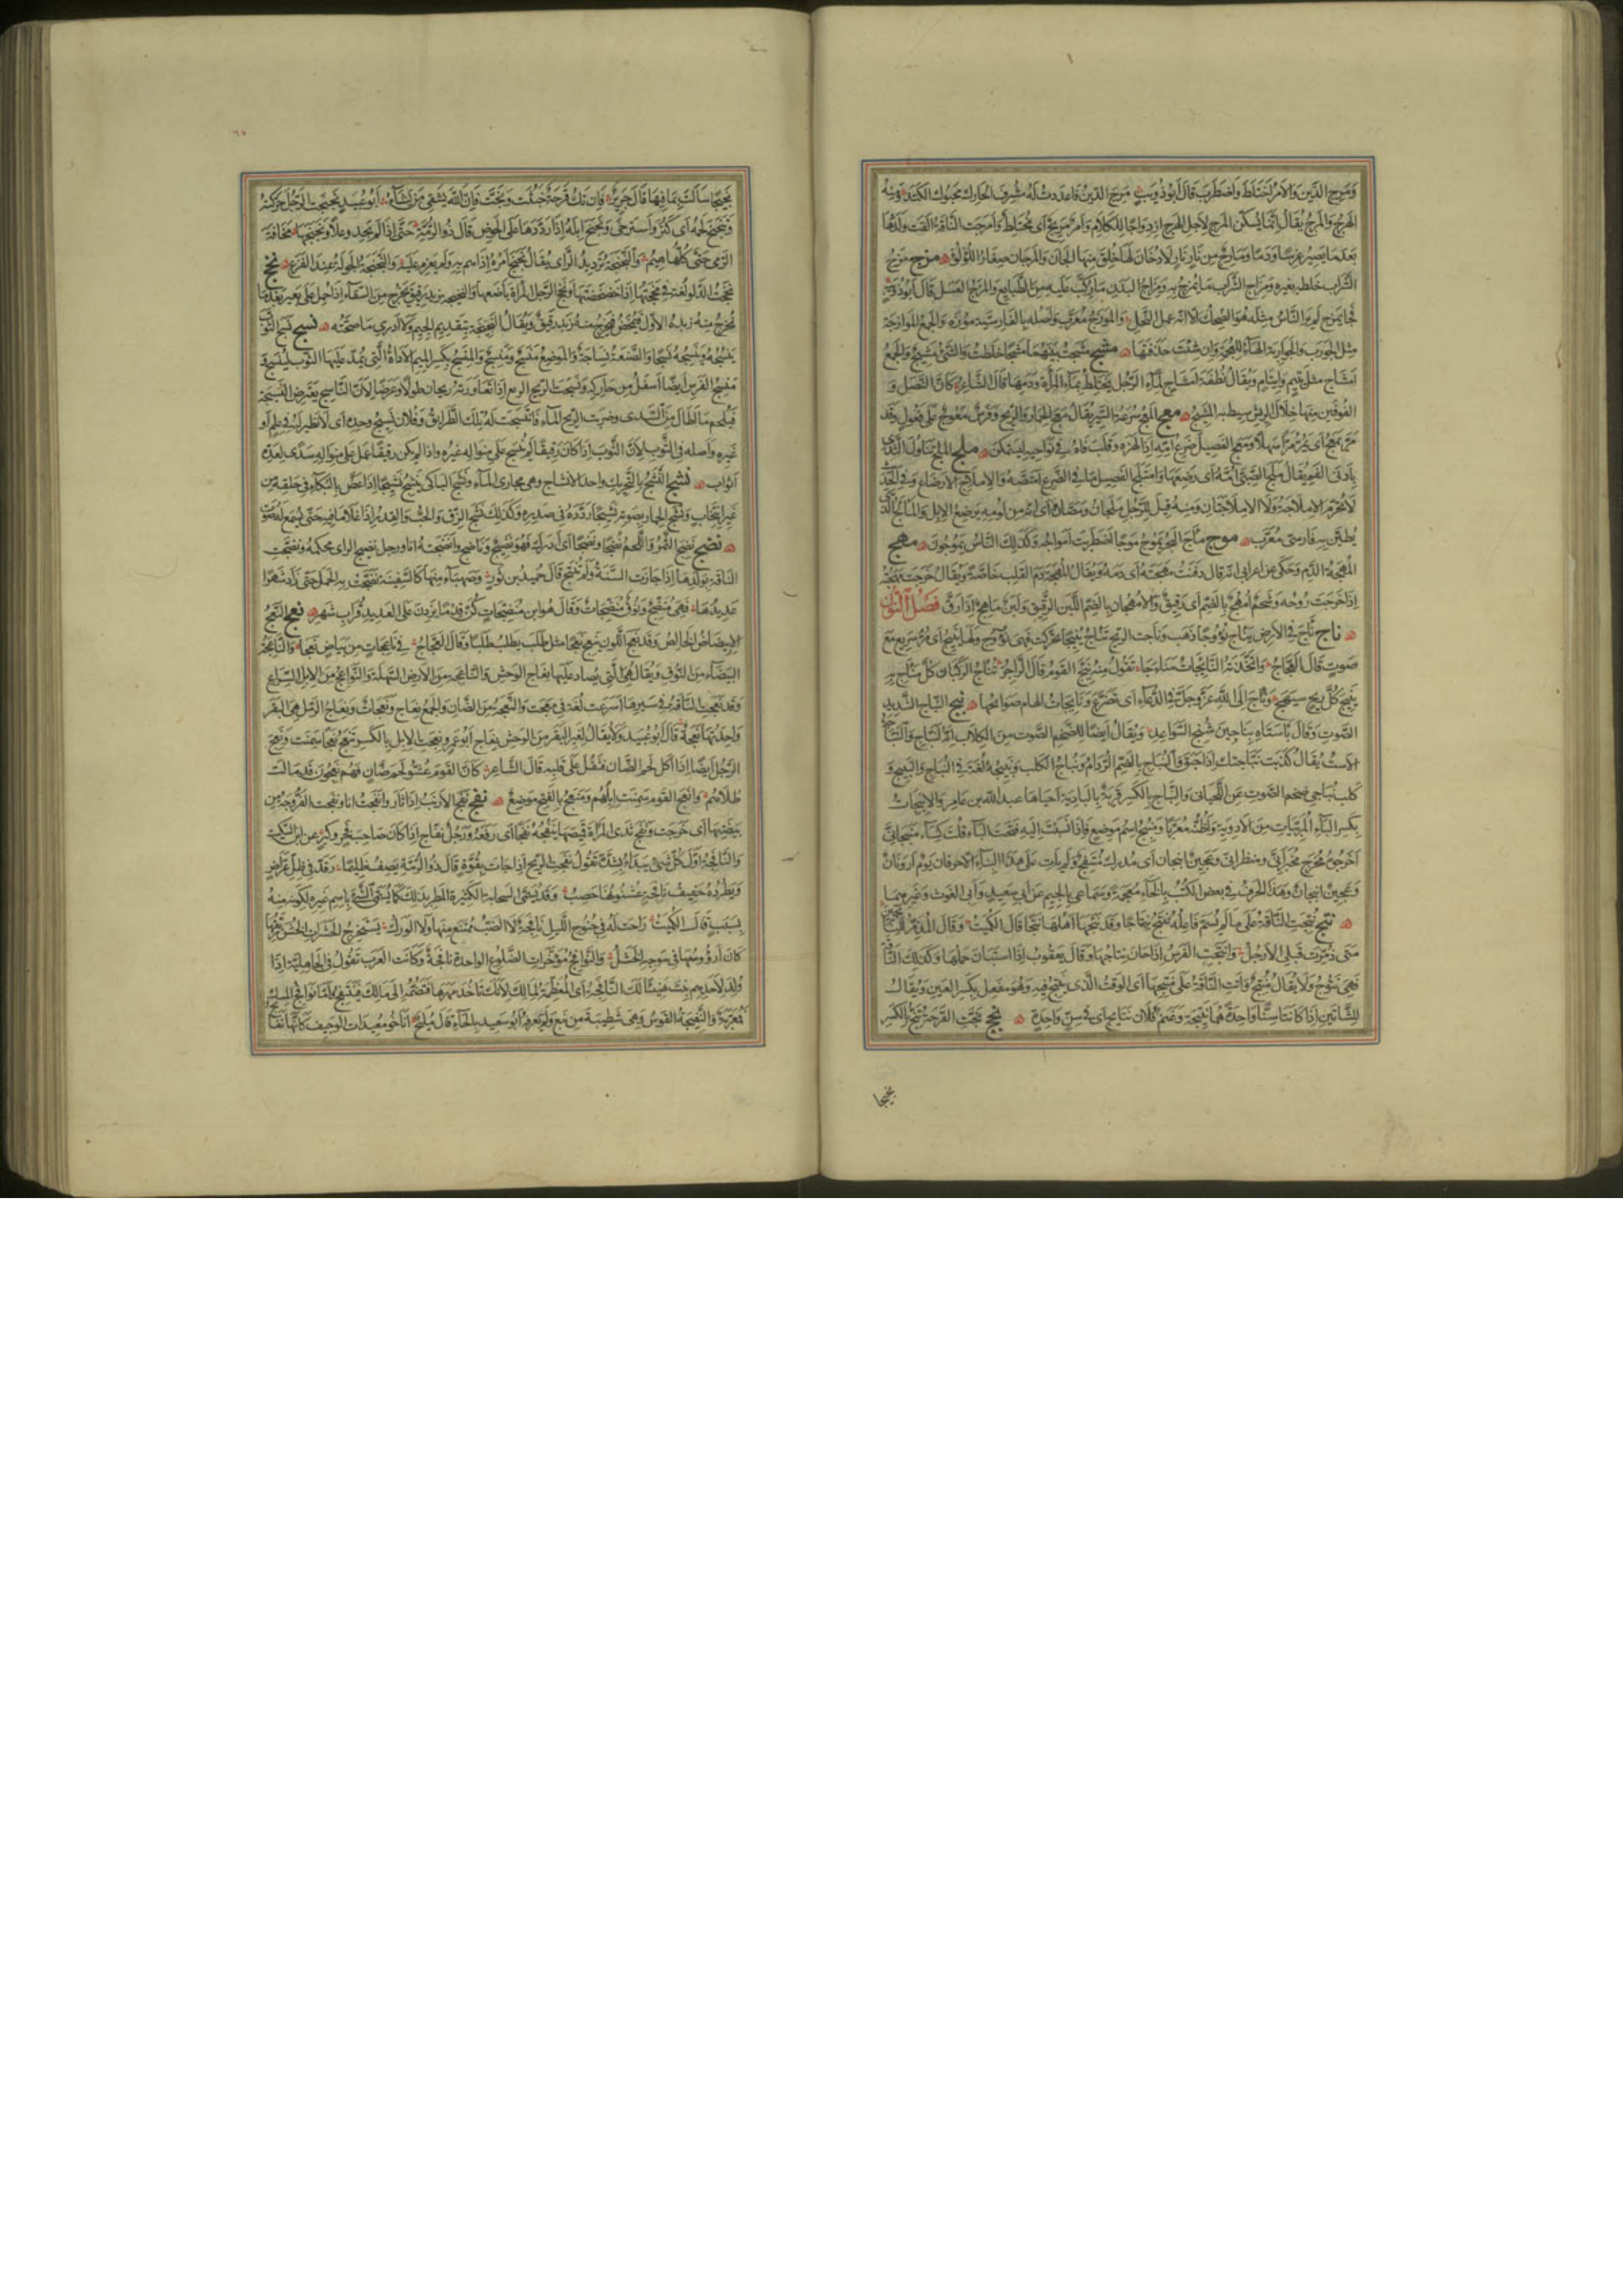 وَمَرِجَ الدِّينُ وَالأَمْرُ اخْتَلَطَ وَاضْطَرَبَ قَالَ أَبُو ذُوَيْبٍ مَرِجَ الدِّينُ فَأَعْدَدْتُ لَهُ مُشْرِفَ الحَارِكِ مَحْبُوكَ الكَتَدْ وَمِنْهُ
الهَرْجُ وَالمَرْجُ يُقَالُ إِنَّمَا يُسَكَّنُ المَرْجُ لِأَجْلِ الهَرْجِ ازْدِوَاجًا لِلْكَلَامِ وَأَمْرٌ مَرِيجٌ أَى مُخْتَلِطٌ وَأَمْرَجَتِ النَّاقَةُ أَلْقَتْ وَلَدَهَا
بَعْدَمَا يَصِيرُ غِرْسًا وَدَمًا وَمَارِجٌ مِنْ نَارٍ نَارٌ لَا دُخَانَ لَهَا خُلِقَ مِنْهَا الجَانُّ وَالمَرْجَانُ صِغَارُ اللُّؤْلُؤِ مزج مَزْجُ
الشَّرَابِ خَلْطُهُ بِغَيْرِهِ وَمِزَاجُ الشَّرَابِ مَا يُمْزَجُ بِهِ وَمِزَاجُ البَدَنِ مَا رُكِّبَ عَلَيْهِ مِنَ الطَّبَايِعِ وَالمِزْجُ العَسَلُ قَالَ أَبُو ذُؤَيْبٍ
فَجَا بِمِزْجٍ لَمْ يَرَ النَّاسُ مِثْلَهُ هُوَ الضَّحْكُ إِلَّا أَنَّهُ عَمَلُ النَّحْلِ وَالمَوْزَجُ مُعَرَّبٌ وَأَصْلُهُ بِالفَارِسِيَّةِ مُوزَه وَالجَمْعُ المَوَازِجَةُ
مِثْلُ الجَوْرَبِ وَالجَوَارِبَةِ الهَاءُ لِلْعُجْمَةِ وَإِنْ شِئْتَ حَذَفْتَهَا مشج مَشَجْتُ بَيْنَهُمَا مَشْجًا خَلَطْتُ وَالشَّىْءُ مَشِيجٌ وَالجَمْعُ
أَمْشَاجٌ مِثْلُ يَتِيمٍ وَأَيْتَامٍ وَيُقَالُ نُطْفَةٌ أَمْشَاجٌ لِمَاءِ الرَّجُلِ يَخْتَلِطُ بِمَاءِ المَرْأَةِ وَدَمِهَا قَالَ الشَّاعِرُ كَأَنَّ النَّصْلَ وَ
الفُوقَيْنِ مِنْهَا خِلَالَ الرِّيشِ سِيطَ بِهِ المَشِيجُ معج المَعْجُ سُرْعَةُ السَّيْرِ يُقَالُ مَعَجَ الحِمَارُ وَالرِّيحُ وَفَرَسٌ مَعُوجٌ عَلَى فَعُولٍ وَقَدْ
مَرَّ يَمْعَجُ أَى مَرَّ مَرًّا سَهْلًا وَمَعَجَ الفَصِيلُ ضَرْعَ أُمِّهِ إِذَا لَهَزَهُ وَقَلَّبَ فَاهُ فِي نَوَاحِيهِ لِيَتَمَكَّنَ ملج المَلْجُ تَنَاوُلُ الثَّدْىِ
بِأَدْنَى الفَمِ يُقَالُ مَلَجَ الصَّبِىُّ أُمَّهُ أَى رَضِعَهَا وَامْتَلَجَ الفَصِيلُ مَا فِي الضَّرْعِ امْتَصَّهُ وَالإِمْلَاجُ الإِرْضَاعُ وَفِي الحَدِيثِ
لَا تُحَرِّمُ الإِمْلَاجَةُ وَلَا الإِمْلَاجَتَانِ وَمِنْهُ قِيلَ لِلرَّجُلِ مَلْجَانُ وَمَصَّانُ أَى أَنَّهُ مِنْ لُؤْمِهِ يَرْضَعُ الإِبِلَ وَالمَالَجُ الَّذِي
يُطَيَّنُ بِهِ فَارِسِىٌّ مُعَرَّبٌ موج مَاجَ البَحْرُ يَمُوجُ مَوْجًا اضْطَرَبَتْ أَمْوَاجُهُ وَكَذَلِكَ النَّاسُ يَمُوجُونَ مهج
المُهْجَةُ الدَّمُ وَحُكِىَ عَنْ أَعْرَابِىٍّ أَنَّهُ قَالَ دَفَنْتُ مُهْجَتَهُ أَى دَمَهُ وَيُقَالُ المُهْجَةُ دَمُ القَلْبِ خَاصَّةً وَيُقَالُ خَرَجَتْ مُهْجَتُهُ
إِذَا خَرَجَتْ رُوحُهُ وَشَحْمٌ أُمْهُجٌ بِالضَّمِّ أَى رَقِيقٌ وَالأُمْهُجَانُ بِالضَّمِّ اللَّبَنُ الرَّقِيقُ وَلَبَنٌ مَاهِجٌ إِذَا رَقَّ فَصْلُ النُّونِ
نأج نَأَجَ فِي الأَرْضِ يَنْأَجُ نُؤُوجًا ذَهَبَ وَنَأَجَتِ الرِّيحُ تَنْأَجُ نَئِيجًا تَحَرَّكَتْ فَهِىَ نَؤُوجٌ وَلَهَا نَئِيجٌ أَى مَرٌّ سَرِيعٌ مَعَ
صَوْتٍ قَالَ العَجَّاجُ وَاتَّخَذَتْهُ النَّائِجَاتُ مَنْأَجَا تَقُولُ مِنْهُ نُئِجَ القَوْمُ قَالَ الرَّاجِزُ وَتُنْأَجُ الرُّكْبَانُ كُلَّ مَنْأَجِ بِهِ
نَئِيجُ كُلِّ رِيحٍ سَيْهَجِ وَنَأَجَ إِلَى اللَّهِ عَزَّ وَجَلَّ فِي الدُّعَاءِ أَى تَضَرَّعَ وَنَائِجَاتُ الهَامِ صَوَائِحُهَا نبج النَّبَّاجُ الشَّدِيدُ
الصَّوْتِ وَقَالَ بِأَسْتَاهِ نَبَّاجِينَ شُنْجِ السَّوَاعِدِ وَيُقَالُ أَيْضًا لِلضَّخْمِ الصَّوْتِ مِنَ الكِلَابِ إِنَّهُ لَنَبَّاجٌ وَالنَّبَّاجَةُ
الاسْتُ يُقَالُ كَذَبَتْ نَبَّاجَتُكَ إِذَا حَبَقَ وَالنُّبَاجُ بِالضَّمِّ الرُّدَامُ وَنُبَاجُ الكَلْبِ وَنَبِيجُهُ لُغَةٌ فِي النُّبَاحِ وَالنَّبِيحِ وَ
كَلْبٌ نُبَاجِىٌّ ضَخْمُ الصَّوْتِ عَنِ اللِّحْيَانِىِّ وَالنِّبَاجُ بِالكَسْرِ قَرْيَةٌ بِالبَادِيَةِ أَحْيَاهَا عَبْدُ اللَّهِ بْنُ عَامِرٍ وَالأَنْبِجَاتُ
بِكَسْرِ البَاءِ المُرَبَّيَاتُ مِنَ الأَدْوِيَةِ وَأَظُنُّهُ مُعَرَّبًا وَمَنْبِجُ اسْمُ مَوْضِعٍ فَإِذَا نَسَبْتَ إِلَيْهِ فَتَحْتَ البَاءَ قُلْتَ كِسَاءٌ مَنْبَجَانِىٌّ
أَخْرَجُوهُ مُخْرَجَ مَخْبَرَانِىٍّ وَمَنْظَرَانِىٍّ وَعَجِينٌ أَنْبَجَانٌ أَى مُدْرِكٌ مُنْتَفِخٌ وَلَمْ يَأْتِ عَلَى هَذَا البِنَاءِ إِلَّا حَرْفَانِ يَوْمٌ أَرْوَنَانٌ
وَعَجِينٌ أَنْبَجَانٌ وَهَذَا الحَرْفُ فِي بَعْضِ الكُتُبِ بِالخَاءِ مُعْجَمَةً وَسَمَاعِى بِالجِيمِ عَنْ أَبِى سَعِيدٍ وَأَبِى الغَوْثِ وَغَيْرِهِمَا
نتج نُتِجَتِ النَّاقَةُ عَلَى مَا لَمْ يُسَمَّ فَاعِلُهُ تُنْتَجُ نِتَاجًا وَقَدْ نَتَجَهَا أَهْلُهَا نَتْجًا قَالَ الكُمَيْتُ وَقَالَ المُذَمِّرُ لِلنَّاتِجِينَ
مَتَى ذُمِّرَتْ قَبْلِىَ الأَرْجُلُ وَأَنْتَجَتِ الفَرَسُ إِذَا حَانَ نِتَاجُهَا وَقَالَ يَعْقُوبُ إِذَا اسْتَبَانَ حَمْلُهَا وَكَذَلِكَ النَّاقَةُ
فَهِىَ نَتُوجٌ وَلَا يُقَالُ مُنْتِجٌ وَأَتَتِ النَّاقَةُ عَلَى مَنْتِجِهَا أَىِ الوَقْتُ الَّذِى تُنْتَجُ فِيهِ وَهُوَ مَفْعِلٌ بِكَسْرِ العَيْنِ وَيُقَالُ
لِلشَّاتَيْنِ إِذَا كَانَتَا سِنًّا وَاحِدَةً هُمَا نَتِيجَةٌ وَغَنَمُ فُلَانٍ نَتَايِجُ أَى فِي سِنٍّ وَاحِدَةٍ نجج نَجَّتِ القَرْحَةُ تَنِجُّ بِالكَسْرِ
نَجِيجًا
نَجِيجًا سَالَتْ بِمَا فِيهَا قَالَ جَرِيرٌ فَإِنْ تَكُ قَرْحَةٌ خَبُثَتْ وَنَجَّتْ فَإِنَّ اللَّهَ يَشْفِى مَنْ يَشَاءُ أَبُو عُبَيْدٍ نَجْنَجْتُ الرَّجُلَ حَرَّكْتُهُ
وَتَنَجْنَجَ لَحْمُهُ أَى كَثُرَ وَاسْتَرْخَى وَنَجْنَجَ إِبِلَهُ إِذَا رَدَّدَهَا عَلَى الحَوْضِ قَالَ ذُو الرُّمَّةِ حَتَّى إِذَا لَمْ يَجِدْ وَعْلًا وَنَجْنَجَهَا مَخَافَةَ
الرَّمْىِ حَتَّى كُلُّهَا هِيمُ وَالنَّجْنَجَةُ تَرْدِيدُ الرَّأْىِ يُقَالُ نَجْنَجَ أَمْرَهُ إِذَا هَمَّ بِهِ وَلَمْ يَعْزِمْ عَلَيْهِ وَالنَّجْنَجَةُ الجَوْلَةُ عِنْدَ الفَزَعِ نخج
نَخَجْتُ الدَّلْوَ لُغَةٌ فِي مَخَجْتُهَا إِذَا خَضْخَضْتَهَا وَنَخَجَ الرَّجُلُ المَرْأَةَ بَاضَعَهَا وَالنَّخِيجَةُ زُبْدٌ رَقِيقٌ يَخْرُجُ مِنَ السِّقَاءِ إِذَا حُمِلَ عَلَى بَعِيرٍ بَعْدَمَا
يُخْرَجُ مِنْهُ زُبْدُهُ الأَوَّلُ فَيُمْخَضُ فَيَخْرُجُ مِنْهُ زُبْدٌ رَقِيقٌ وَيُقَالُ النَّجِيخَةُ بِتَقْدِيمِ الجِيمِ وَلَا أَدْرِى مَا صِحَّتُهُ نسج نَسَجَ الثَّوْبَ
يَنْسِجُهُ وَيَنْسُجُهُ نَسْجًا وَالصَّنْعَةُ نِسَاجَةٌ وَالمَوْضِعُ مَنْسَجٌ وَمَنْسِجٌ وَالمِنْسَجُ بِكَسْرِ المِيمِ الأَدَاةُ الَّتِي يُمَدُّ عَلَيْهَا الثَّوْبُ لِيُنْسَجَ وَ
مَنْسِجُ الفَرَسِ أَيْضًا أَسْفَلُ مِنْ حَارِكِهِ وَنَسَجَتِ الرِّيحُ الرَّبْعَ إِذَا تَعَاوَرَتْهُ رِيحَانِ طُولًا وَعَرْضًا لِأَنَّ النَّاسِجَ يَعْتَرِضُ النَّسِيجَةَ
فَيُلْحِمُ مَا أَطَالَ مِنَ السَّدَى وَضَرَبَتِ الرِّيحُ المَاءَ فَانْتَسَجَتْ لَهُ تِلْكَ الطَّرَائِقُ وَفُلَانٌ نَسِيجُ وَحْدِهِ أَى لَا نَظِيرَ لَهُ فِي عِلْمٍ أَوْ
غَيْرِهِ وَأَصْلُهُ فِى الثَّوْبِ لِأَنَّ الثَّوْبَ إِذَا كَانَ رَفِيعًا لَمْ يُنْسَجْ عَلَى مِنْوَالِهِ غَيْرُهُ وَإِذَا لَمْ يَكُنْ رَفِيعًا عُمِلَ عَلَى مِنْوَالِهِ سَدًى لِعِدَّةِ
أَثْوَابٍ نشج النَّشَجُ بِالتَّحْرِيكِ وَاحِدُ الأَنْشَاجِ وَهِىَ مَجَارِى المَاءِ وَنَشَجَ البَاكِى يَنْشِجُ نَشِيجًا إِذَا غَصَّ بِالبُكَاءِ فِي حَلْقِهِ مِنْ
غَيْرِ انْتِحَابٍ وَنَشَجَ الحِمَارُ بِصَوْتِهِ نَشِيجًا رَدَّدَهُ فِي صَدْرِهِ وَكَذَلِكَ نَشَجَ الزِّقُّ وَالحُبُّ وَالقِدْرُ إِذَا غَلَا مَا فِيهِ حَتَّى يُسْمَعَ لَهُ صَوْتٌ
نضج نَضِجَ الثَّمَرُ وَاللَّحْمُ نُضْجًا وَنَضْجًا أَى أَدْرَكَ فَهُوَ نَضِيجٌ وَنَاضِجٌ وَأَنْضَجْتُهُ أَنَا وَرَجُلٌ نَضِيجُ الرَّأْىِ مُحْكَمُهُ وَنَضَّجَتِ
النَّاقَةُ بِوَلَدِهَا إِذَا جَازَتِ السَّنَةَ وَلَمْ تُنْتَجْ قَالَ حُمَيْدُ بْنُ ثَوْرٍ وَصَهْبَاءَ مِنْهَا كَالسَّفِينَةِ نَضَّجَتْ بِهِ الحَمْلَ حَتَّى زَادَ شَهْرًا
عَدِيدُهَا فَهِىَ مُنَضِّجٌ وَنُوقٌ مُنَضِّجَاتٌ وَقَالَ هُوَ ابْنُ مُنَضِّجَاتٍ كُنَّ قِدْمًا يَزِدْنَ عَلَى العَدِيدِ قُرَابَ شَهْرِ نعج النَّعَجُ
الابْيِضَاضُ الخَالِصُ وَقَدْ نَعَجَ اللَّوْنُ يَنْعَجُ نَعَجًا مِثْلُ طَلَبَ يَطْلُبُ طَلَبًا وَقَالَ العَجَّاجُ فِي نَاعِجَاتٍ مِنْ بَيَاضٍ نَعَجَا وَالنَّاعِجَةُ
البَيْضَاءُ مِنَ النُّوقِ وَيُقَالُ هِىَ الَّتِى يُصَادُ عَلَيْهَا نِعَاجُ الوَحْشِ وَالنَّاعِجَةُ مِنَ الأَرْضِ السَّهْلَةُ وَالنَّوَاعِجُ مِنَ الإِبِلِ السِّرَاعُ
وَقَدْ نَعَجَتِ النَّاقَةُ فِي سَيْرِهَا أَسْرَعَتْ لُغَةٌ فِي مَعَجَتْ وَالنَّعْجَةُ مِنَ الضَّأْنِ وَالجَمْعُ نِعَاجٌ وَنَعَجَاتٌ وَنِعَاجُ الرَّمْلِ هِىَ البَقَرُ
وَاحِدَتُهَا نَعْجَةٌ قَالَ أَبُو عُبَيْدٍ وَلَا يُقَالُ لِغَيْرِ البَقَرِ مِنَ الوَحْشِ نِعَاجٌ أَبُو عَمْرٍو نَعِجَتِ الإِبِلُ بِالكَسْرِ تَنْعَجُ نَعَجًا سَمِنَتْ وَنَعِجَ
الرَّجُلُ أَيْضًا إِذَا أَكَلَ لَحْمَ الضَّأْنِ فَثَقُلَ عَلَى قَلْبِهِ قَالَ الشَّاعِرُ كَأَنَّ القَوْمَ عُشُّوا لَحْمَ ضَأْنٍ فَهُمْ نَعِجُونَ قَدْ مَالَتْ
طُلَاهُمْ وَأَنْعَجَ القَوْمُ سَمِنَتْ إِبِلُهُمْ وَمَنْعَجٌ بِالفَتْحِ مَوْضِعٌ نفج نَفَجَ الأَرْنَبُ إِذَا ثَارَ وَأَنْفَجْتُهُ أَنَا وَنَفَجَتِ الفَرُّوجَةُ مِنْ
بَيْضَتِهَا أَى خَرَجَتْ وَنَفَجَ ثَدْىُ المَرْأَةِ قَمِيصَهَا يَنْفُجُهُ نَفْجًا أَى رَفَعَهُ وَرَجُلٌ نَفَّاجٌ إِذَا كَانَ صَاحِبَ فَخْرٍ وَكِبْرٍ عَنِ ابْنِ السِّكِّيتِ
وَالنَّافِجَةُ أَوَّلُ كُلِّ شَىْءٍ يَبْدَأُ بِشِدَّةٍ تَقُولُ نَفَجَتِ الرِّيحُ إِذَا جَاءَتْ بِقُوَّةٍ قَالَ ذُو الرُّمَّةِ يَصِفُ ظَلِيمًا يَرْقَدُّ فِي ظِلِّ عَرَّاصٍ
وَيَطْرُدُهُ حَفِيفُ نَافِجَةٍ عُثْنُونُهَا حَصِبُ وَقَدْ تُسَمَّى السَّحَابَةُ الكَثِيرَةُ المَطَرِ بِذَلِكَ كَمَا يُسَمَّى الشَّىْءُ بِاسْمِ غَيْرِهِ لِكَوْنِهِ مِنْهُ
بِسَبَبٍ قَالَ الكُمَيْتُ رَاحَتْ لَهُ فِي جُنُوحِ اللَّيْلِ نَافِجَةٌ لَا الضَّبُّ مُمْتَنِعٌ مِنْهَا وَلَا الوَرَلُ يَسْتَخْرِجُ الحَشَرَاتِ الخُشْنَ رَيِّقُهَا
كَأَنَّ أَرْؤُسَهَا فِي مَوْجِهِ الخَشَلُ وَالنَّوَافِجُ مُؤَخَّرَاتُ الضُّلُوعِ الوَاحِدَةُ نَافِجَةٌ وَكَانَتِ العَرَبُ تَقُولُ فِي الجَاهِلِيَّةِ إِذَا
وُلِدَ لِأَحَدِهِمْ بِنْتٌ هَنِيئًا لَكَ النَّافِجَةُ أَىِ المُعَظِّمَةُ لِمَالِكَ لِأَنَّكَ تَأْخُذُ مَهْرَهَا فَتَضُمُّهُ إِلَى مَالِكَ فَيَنْتَفِجُ وَأَمَّا نَوَافِجُ المِسْكِ
مُعَرَّبَةٌ وَالنَّفِيجَةُ القَوْسُ وَهِىَ شَطِيبَةٌ مِنْ نَبْعٍ وَلَمْ يَعْرِفْهُ أَبُو سَعِيدٍ بِالحَاءِ قَالَ مُلَيْحٌ أَنَاخُوا مُعِيدَاتِ الوَجِيفِ كَأَنَّهَا نَفَا